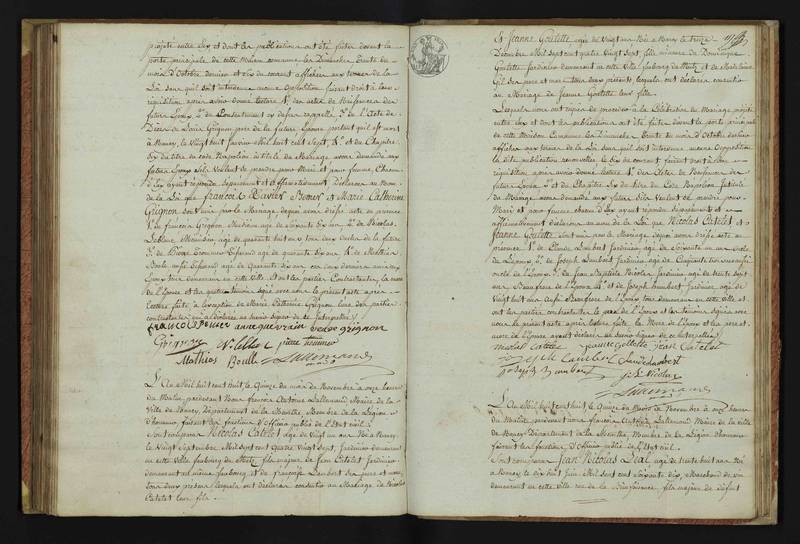 projeté entre eux et dont les publications ont été faites devant la
porte principale de cette Maison commune les Dimanches trente du
mois d'Octobre dernier et six du courant affichées aux termes de la
Loi sans qu'il soit intervenu aucune opposition faisant droit à leur
réquisition après avoir donné lecture 1° des actes de Naissance des
futurs Epoux, 2° du Consentement cy dessus rappellé 3° de l'Acte de
Décès de Grignon père de la future Epouse portant qu'il est mort
à Nancy, le vingt huit cent sept, 4° et du Chapitre
Six du titre du code Napoléon intitulé du Mariage avons demandé aux
futurs Epoux s'ils veulent se prendre pour Mari et pour femme, Chacun
d'eux ayant répondu séparement et affirmativement Déclarons au Nom
de la Loi que François Xavier Bemer et Marie Catherine
Grignon sont unis par le Mariage, dequoi avons dressé acte en présence
1° de françois Grignon âgé de soixante dix ans 2° de Nicolas
Leblanc âgé de quarante huit ans tous deux oncles de la future
3° de Pierre âgé de quarante six ans 4° de Mathias
Boulle âgé de Quarante dix ans ces deux derniers amis aux
Epoux tous demeurans en cette ville et ont les parties Contractantes, la mère
de l'Epouse et les quatre témoins signé avec nous le présent acte après
Lecture faite à l'exception de Marie Catherine Grignon l'une des parties
contractantes qui a déclaré ne savoir signer de ce Interpellée
francois Bemer anne querrain veuve grignon
Grignon N leblanc pierre
Mathias Boulle Lallemand
L'An Mil huit cent huit le Quinze du mois de Novembre à onze heures
du Matin, pardevant Nous françois Antoine Lallemand Maire de la
Ville de Nancy, Département de la Meurthe, Membre de la Légion
d'honneur, faisant les fonctions d'Officier public de l'Etat civil
Sont comparus Nicolas Catelet âgé de vingt un ans Né à Nancy
le Vingt Septembre Mil sept cent Quatre Vingt Sept, Jardinier demeurant
en cette Ville, faubourg de Metz, fils majeur de Jean Catelet Jardinier
demeurant au même faubourg et de françoise Lambert ses père et mère
tous deux présens lesquels ont déclaré consentir au Mariage de Nicolas
Catelet leur fils
Et Jeanne Goulette âgée de Vingt un ans Née à Nancy le treize
Décembre Mil Sept cent quatre Vingt Sept, fille mineure de Dominique
Goulette Jardinier demeurant en cette Ville faubourg de Metz et de Madelaine
Gil ses père et mère tous deux présents, lesquels ont déclaré consentir
au Mariage de Jeanne Goulette leur fille
Lesquels nous ont requis de procéder à la Célébration du Mariage projeté
entre eux et dont les publications ont été faites devant la porte principale
de cette Maison Commune les Dimanches trente du mois d'Octobre dernier
affichées aux termes de la Loi sans qu'il soit intervenu aucune opposition
faisant droit à leur
réquisition après avoir donné lecture 1° des Actes de Naissance des
futurs Epoux 2° du Chapitre Six du titre du Code Napoléon Intitulé
du Mariage avons demandé aux futurs s'ils veulent se prendre pour
Mari et pour femme chacun d'eux ayant répondu séparement et
affirmativement Déclarons au nom de la Loi que Nicolas Catelet et
Jeanne Goulette sont unis par le Mariage dequoi avons dressé acte en
présence 1° de Claude Lambert Jardinier, âgé de Soixante un ans oncle
de l'Epoux 2° de Joseph Lambert Jardinier âgé de Cinquante trois ans aussi
oncle de l'Epoux 3° de Jean Baptiste Nicolas Jardinier âgé de trente sept
ans Beaufrere de l'Epoux 4° et de Joseph Lambert Jardinier âgé de
Vingt huit ans Beaufrere de l'Epoux tous demeurant en cette ville et
ont les parties contractantes le père de l'Epoux et les témoins signé avec
nous le présent acte après lecture faite, la Mère de l'Epoux et les père et
mère de l'Epouse ayant déclaré ne savoir signer de ce interpellés
nicolas Catelet jeanne Gollette jean Catelet
Lambert Claude lambert
Joseph Lambert J B Nicolas
Lallemand
L'An Mil huit cent huit le Quinze du Mois de Novembre à onze heures
du Matin, pardevant nous françois Antoine Lallemand Maire de la ville
de Nancy Département de la Meurthe, Membre de la Légion d'honneur
faisant les fonctions d'Officier public de l'Etat civil
Sont comparus Jean Nicolas Leal âgé de trente huit ans Né
à Nancy, le dix huit Juin Mil Sept cent soixante dix, Marchand de vin
demeurant en cette ville rue de la Bienfaisance, fils majeur de défunt